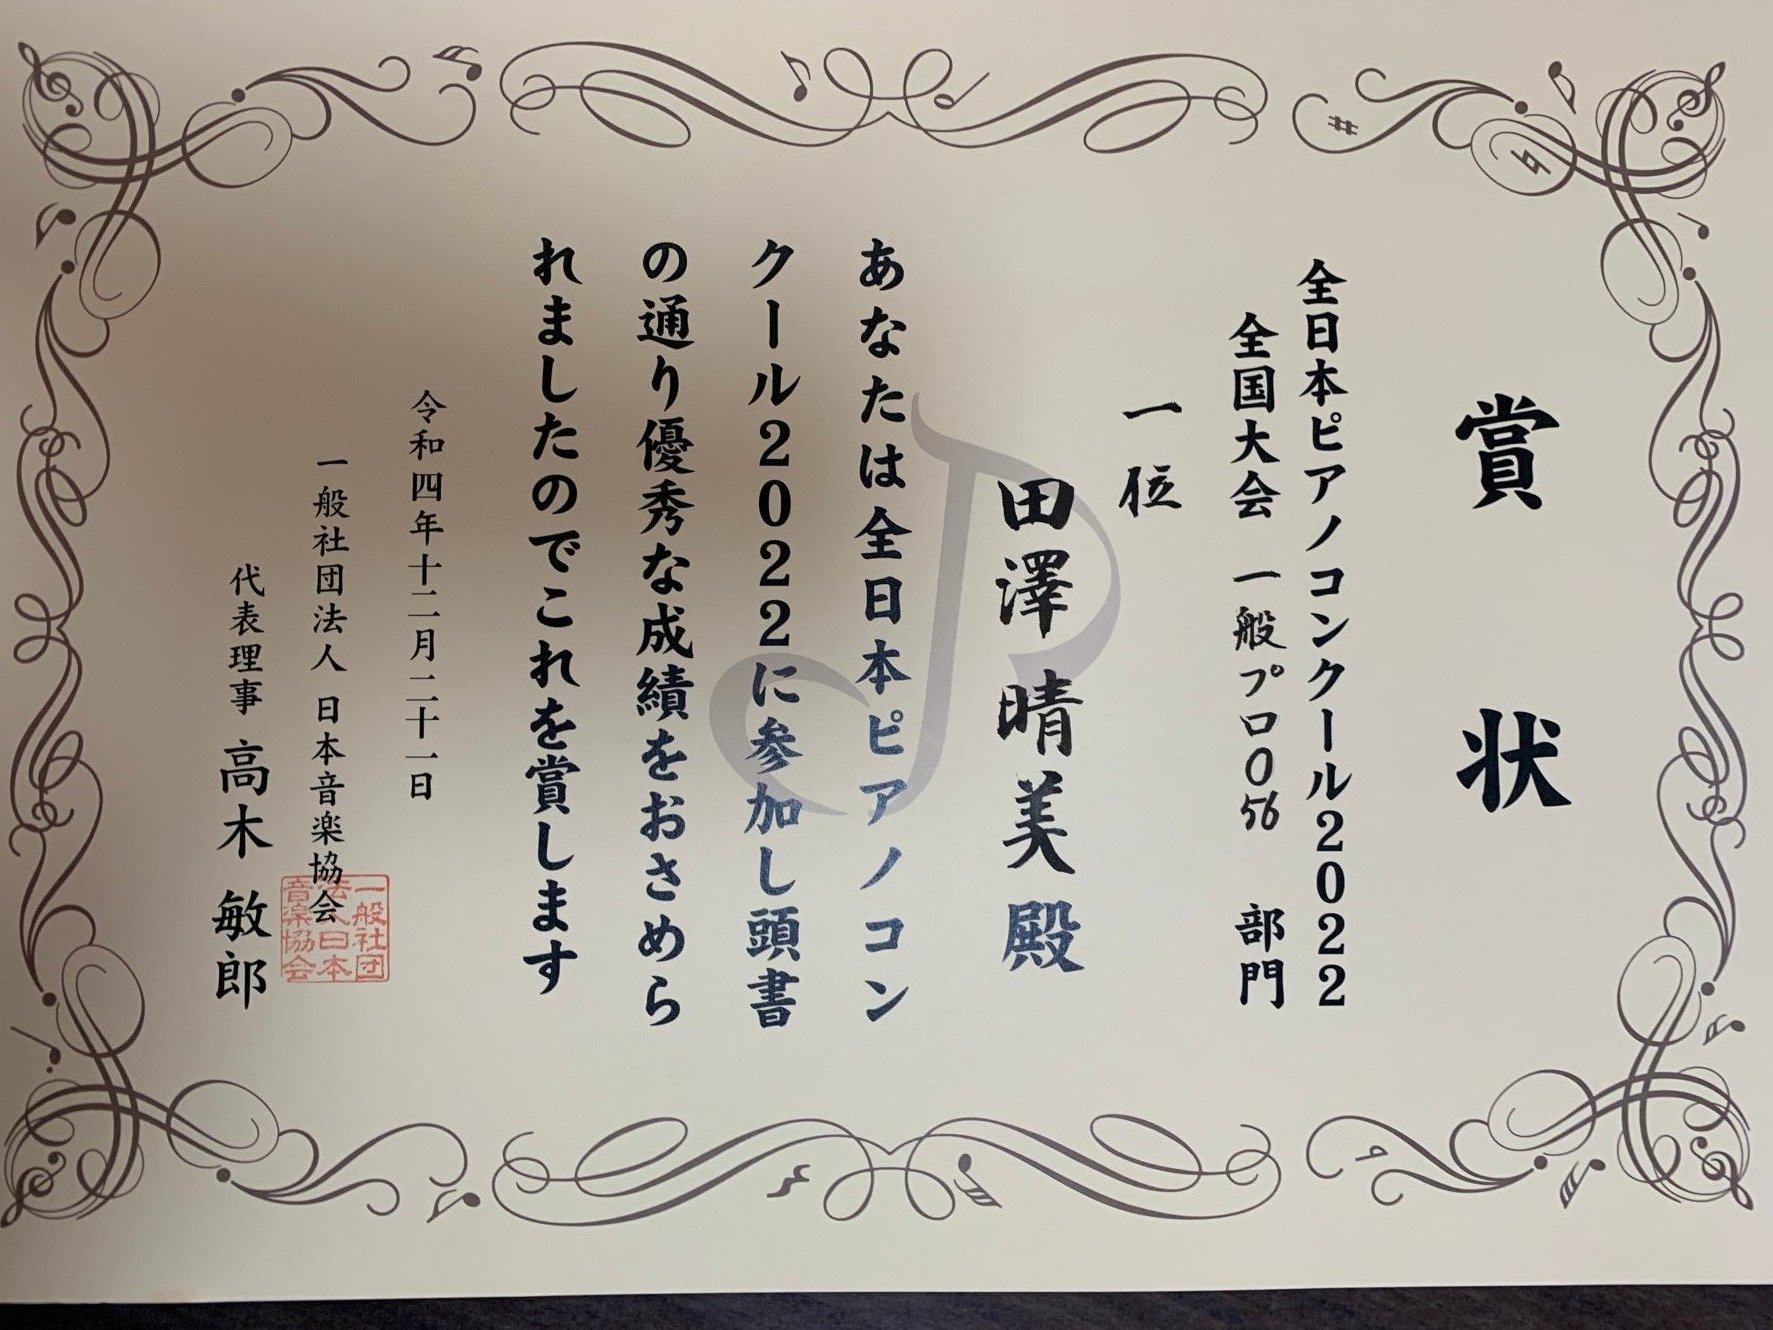 賞状
全日本ピアノコンクール2022
全国大会 一般プロO56 部門
一位
田澤晴美殿
あなたは全日本ピアノコン
クール2022に参加し頭書
の通り優秀な成績をおさめら
れましたのでこれを賞します
令和四年十二月二十一日
一般社団法人 日本音楽協会
代表理事 高木敏郎
一般社団
法人日本
音楽協会